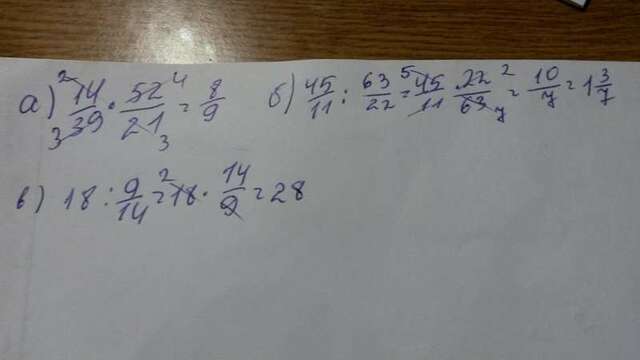 а) ²14/39₃ · 52⁴/21₃ = 8/9 б) 45/11 : 63/22 = ⁵45/11 · 22²/63₇ = 10/7 = 1 3/7
в) 18 : 9/14 = ²18 · 14/9 = 28